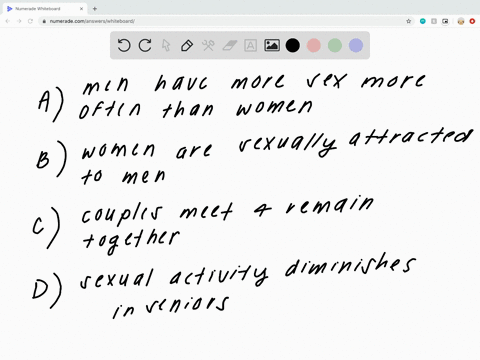 Numerade Whiteboard
numerade.com/answers/whiteboard/
A) men have more sex more
often than women
B) women are sexually attracted
to men
C) couples meet & remain
together
D) sexual activity diminishes
in seniors